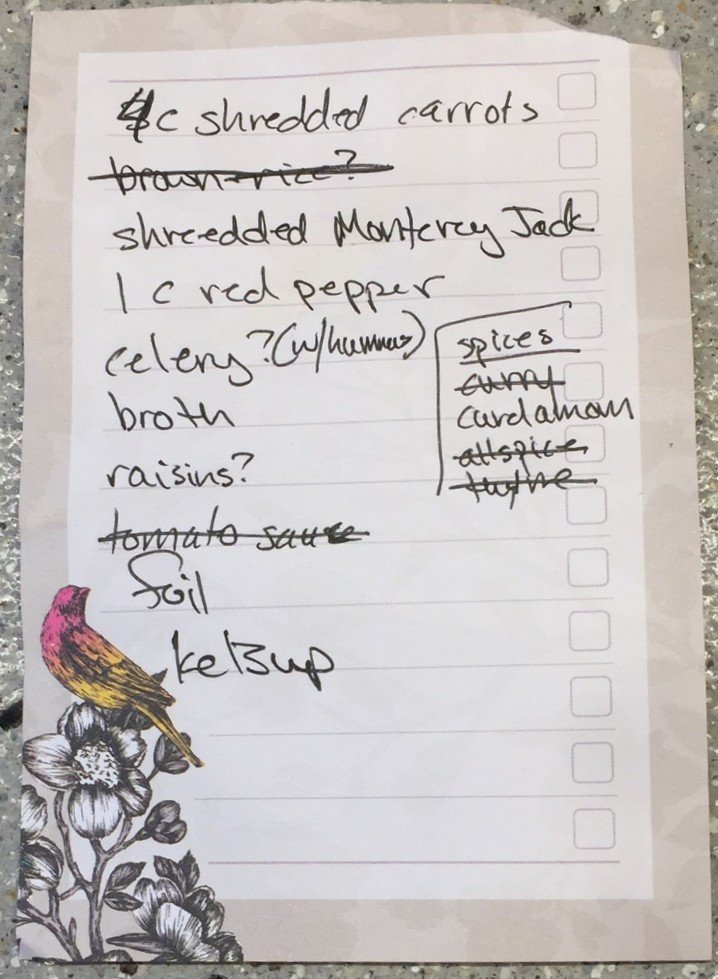 4c shredded carrots
brown rice?
shreedded Monterey Jack
1 c red pepper
celery? (w/hummus)
broth
raisins?
tomato sauce
foil
ketsup
spices
curry
cardamom
allspice
thyme